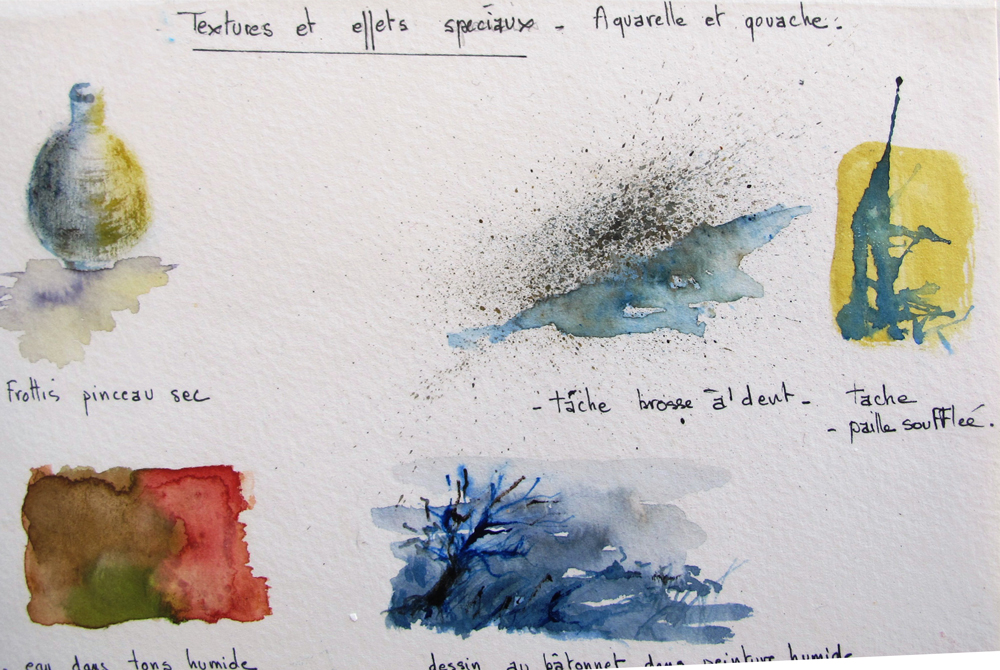 Textures et effets spéciaux - Aquarelle et gouache:
Frottis pinceau sec
- tâche brosse à dent -
tache
- paille soufflée.
eau dans tons humide
dessin au bâtonnet dans peinture humide